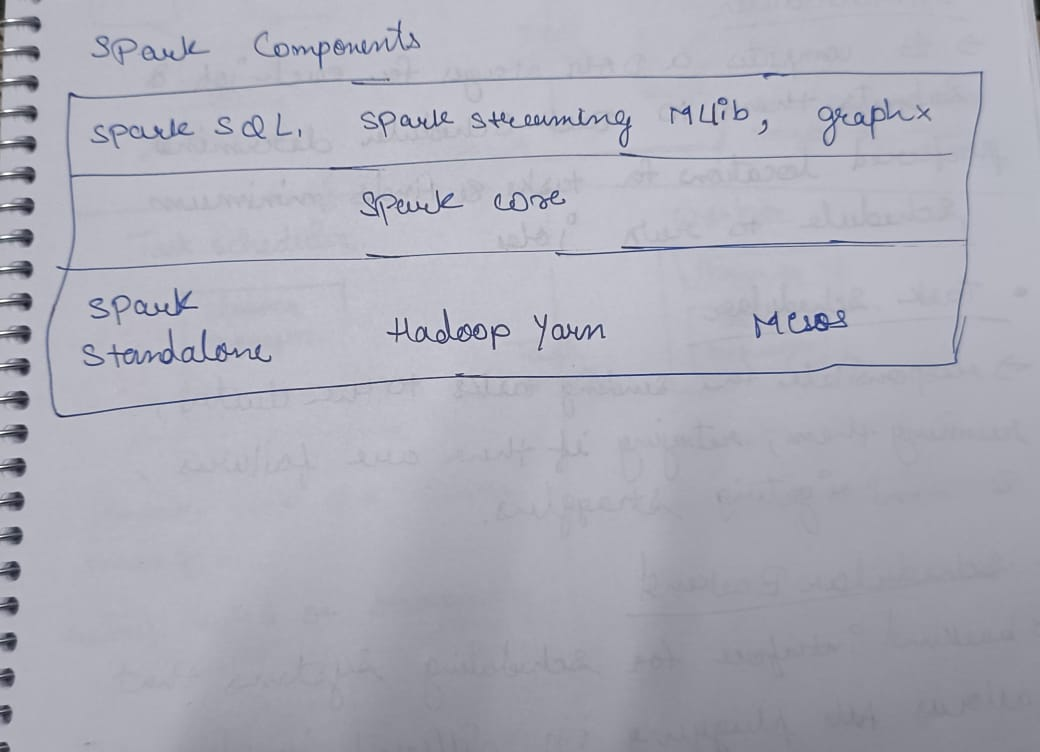 Spark Components
Spark SQL, Spark Streaming MLlib, graphx
Spark core
Spark
Standalone Hadoop Yarn Mesos